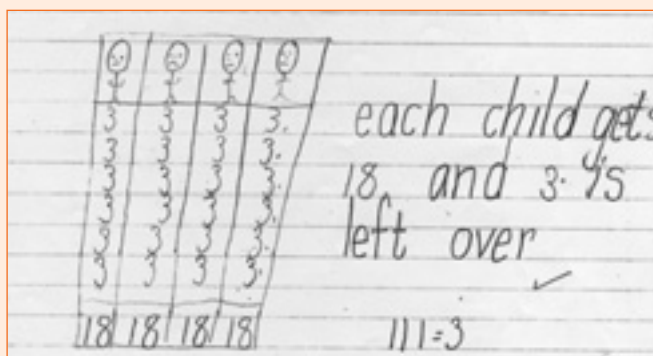 3 3 3 3.
3 3 3 3.
3 3 3 3.
3 3 3 3.
3 3 3 3.
3 3 3 3.
18 18 18 18
each child gets
18, and 3. is
left over
111=3